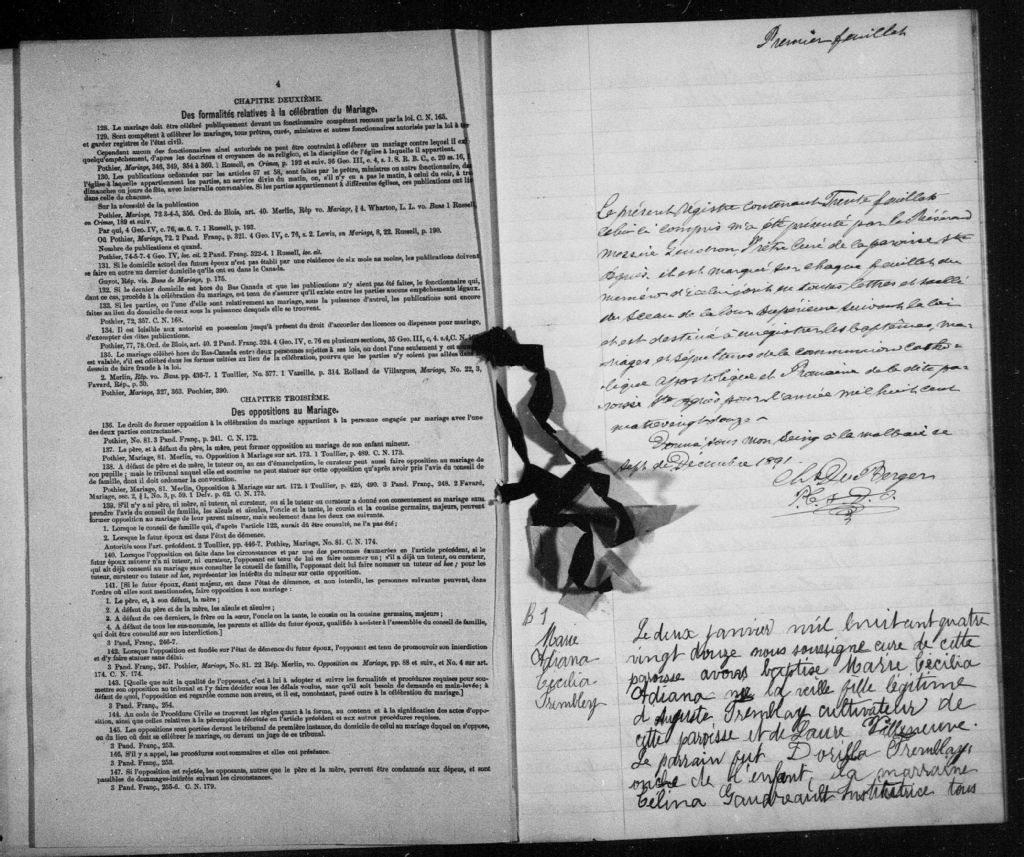 4
CHAPITRE DEUXIÈME.
Des formalités relatives à la célébration du Mariage.
128. Le mariage doit être célébré publiquement devant un fonctionnaire compétent reconnu par la loi. C. N. 165.
129. Sont compétent à célébrer les mariages, tous prêtres, curés, ministres et autres fonctionnaires autorisés par la loi à
et garder registres de l'état civil.
Cependant aucun des fonctionnaires ainsi autorisés ne peut être contraint à célébrer un mariage contre lequel il
quelqu'empêchement, d'apres les doctrines et croyances de sa religion, et la discipline de l'église à laquelle il appartient.
Pothier, Mariage, 346, 349, 354 à 360. 1 Russell, on Crimes, p. 192 et suiv. 36 Geo. III, c. 4, s. 1. S. R. B. C., c. 20 ss. 16,
130. Les publications ordonnées par les articles 57 et 58, sont faites par le prêtre, ministre ou autre fonctionnaire, dans
l'église à laquelle appartiennent les parties, au service divin du matin, ou, s'il n'y en a pas le matin, à celui du soir, à
dimanches ou jours de fête, avec intervalle convenables. Si les parties appartiennent à différentes églises, ces publications ont
dans celle de chacune.
Sur la nécessité de la publication
Pothier, Mariage, 72 3-4-5, 356. Ord. de Blois, art. 40. Merlin, Rép vo. Mariage, § 4. Wharton, L. L. vo. Bans 1 Russell
on Crimes, 189 et suiv.
Par qui, 4 Geo. IV, c. 76, ss. 6. 7. 1 Russell, p. 193.
Où Pothier, Mariage, 72. 2 Pand. Franç., p. 321. 4 Geo. IV, c. 76, s. 2. Lewis, on Mariage, 8, 22. Russell, p. 190.
Nombre de publications et quand.
Pothier, 74-5-7. 4 Geo. IV, loc. cit. 2 Pand. Franç. 322-4. 1 Russell, loc. cit.
131. Si le domicile actuel des futurs époux n'est pas établi par une résidence de six mois au moins, les publications doivent
se faire en outre au dernier domicile qu'ils ont eu dans le Canada.
Guyot, Rép. vis. Bans de Mariage, p. 175.
132. Si le dernier domicile est hors du Bas Canada et que les publications n'y aient pas été faites, le fonctionnaire qui,
dans ce cas, procède à la célébration du mariage, est tenu de s'assurer qu'il existe entre les parties aucuns empêchements légaux.
133. Si les parties, ou l'une d'elle sont relativement au mariage, sous la puissance d'autrui, les publications sont encore
faites au lieu du domicile de ceux sous la puissance desquels elle se trouvent.
Pothier, 72, 357. C. N. 168.
134. Il est loisible aux autorité en possession jusqu'à présent du droit d'accorder des licences ou dispenses pour mariage,
d'exempter des dites publications.
Pothier, 77, 78. Ord. de Blois, art. 40. 2 Pand. Franç. 324. 4 Geo. IV, c. 76 en plusieurs sections, 35 Geo. III, c. 4. s.4, C. N.
135. Le mariage célébré hors du Bas-Canada entre deux personnes sujettes à ses lois, ou dont l'une seulement y est
est valable, s'il est célébré dans les formes usitées au lieu de la célébration, pourvu que les parties n'y soient pas allées dans
dessein de faire fraude à la loi.
2. Merlin, Rép. vo. Bans. pp. 436-7. 1 Toullier, No. 577. 1 Vazeille, p. 314. Rolland de Villargues, Mariage, No. 22, 3,
Favard, Rép., p. 30.
Pothier, Mariage, 327, 363. Pochier, 390.
CHAPITRE TROISIÈME.
Des oppositions au Mariage.
136. Le droit de former opposition à la célébration du mariage appartient à la personne engagée par mariage avec l'une
des deux parties contractantes.
Pothier, No. 81. 3 Pand. Franç., p. 241. C. N. 172.
137. Le père, et à défaut du père, la mère, peut former opposition au mariage de son enfant mineur.
Pothier, Mariage, 81. Merlin, vo. Opposition à Mariage sur art. 173. 1 Toullier, p. 489. C. N. 173.
138. A défaut de père et de mère, le tuteur ou, au cas d'émancipation, le curateur peut aussi faire opposition au mariage de
son pupille; mais le tribunal auquel elle est soumise ne peut statuer sur cette opposition qu'après avoir pris l'avis du conseil de
famille, dont il doit ordonner la convocation.
Pothier, Mariage, 81. Merlin, Opposition à Mariage sur art. 172. 1 Toullier, p. 425, 490. 3 Pand. Franç. 248. 2 Favard,
Mariage, sec. 2, § 1, No. 3, p. 59. 1 Delv. p. 62. C. N. 175.
139. S'il n'y a ni père, ni mère, ni tuteur, ni curateur, ou si le tuteur ou curateur a donné son consentement au mariage sans
prendre l'avis du conseil de famille, les aïeuls et aïeules, l'oncle et la tante, le cousin et la cousine germains, majeurs, peuvent
former opposition au mariage de leur parent mineur, mais seulement dans les deux cas suivants.
1. Lorsque le conseil de famille qui, d'après l'article 122, aurait dû être consulté, ne l'a pas été;
2. Lorsque le futur époux est dans l'état de démence.
Autorités sous l'art. précédent. 2 Toullier, pp. 446-7. Pothier, Mariage, No. 81. C. N. 174.
140. Lorsque l'opposition est faite dans les circonstances et par une des personnes énumérées en l'article précédent, si le
futur époux mineur n'a ni tuteur, ni curateur, l'opposant est tenu de lui en faire nommer un; s'il a déjà un tuteur, ou curateur,
qui ait déjà consenti au mariage sans consulter le conseil de famille, l'opposant doit lui faire nommer un tuteur ad hoc; pour les
tuteur, curateur ou tuteur ad hoc, représenter les intérêts du mineur sur cette opposition.
141. [Si le futur époux, étant majeur, est dans l'état de démence, et non interdit, les personnes suivantes peuvent, dans
l'ordre où elles sont mentionnées, faire opposition à son mariage:
1. Le père, et, à son défaut, la mère;
2. A défaut du père et de la mère, les aïeuls et aïeules;
3. A défaut de ces derniers, le frère ou la sœur, l'oncle ou la tante, le cousin ou la cousine germains, majeurs;
4. A défaut de tous les sus-nommés, les parents et alliés du futur époux, qualifiés à assister à l'assemblée du conseil de famille,
qui doit être consulté sur son interdiction.]
3 Pand. Franç., 246-7.
142. Lorsque l'opposition est fondée sur l'état de démence du futur époux, l'opposant est tenu de promouvoir son interdiction
et d'y faire statuer sans délai.
3 Pand. Franç., 247. Pothier, Mariage, No. 81. 22 Rép. Merlin, vo. Opposition au Mariage, pp. 88 et suiv., et No. 4 sur art.
174. C. N. 174.
143. [Quelle que soit la qualité de l'opposant, c'est à lui à adopter et suivre les formalités et procédures requises pour sou-
mettre son opposition au tribunal et l'y faire décider sous les délais voulus, sans qu'il soit besoin de demande en main-levée; à
défaut de quoi, l'opposition est regardée comme non avenue, et il est, nonobstant, passé outre à la célébration du mariage.]
3 Pand. Franç. 254.
144. Au code de Procédure Civile se trouvent les règles quant à la forme, au contenu et à la signification des actes d'oppo-
sition, ainsi que celles relatives à la péremption décrétée en l'article précédent et aux autres procédures requises.
145. Les oppositions sont portées devant le tribunal de première instance, du domicile de celui au mariage duquel on s'oppose,
ou du lieu où doit se célébrer le mariage, ou devant un juge de ce tribunal.
3 Pand. Franç., 253.
146. S'il y a appel, les procédures sont sommaires et elles ont préséance.
3 Pand. Franç., 253.
147. Si l'opposition est rejetée, les opposants, autres que le père et la mère, peuvent être condamnés aux dépens, et sont
passibles de dommages-intérêts suivant les circonstances.
3 Pand. Franç., 255-6. C. N. 179.
Premier feuillet
Le présent Registre contenant Trente feuillets
celui ci compris m'a été présenté par le Révérend
messire Gendron, Prêtre Curé de la paroisse Ste
Agnès et est marqué sur chaque feuillet du
numéro d'icelui, écrit en toutes lettres et scellé
du Sceau de la Cour Supérieure suivant la loi
et est destiné à enregistrer les baptêmes, ma-
riages et sépultures de la communion Catho-
lique Apostolique et Romaine de la dite pa-
roisse Ste Agnès pour l'année mil huit cent
quatre vingt douze -
Donné sous mon Seing à la malbaie ce
sept de Décembre 1891
Chs Du Berger
P. C. S. D. S.
B 1
Marie
Adiana
Cecilia
Tremblay
Le deux janvier mil huit cent quatre
vingt douze nous soussigné curé de cette
paroisse avons baptisé Marie Cécilia
Adiana née la veille fille légitime
d'Auguste Tremblay cultivateur de
cette paroisse et de Laure Villeneuve.
Le parrain fut Dorilla Tremblay,
oncle de l'enfant, la marraine
Célina Gaudreault institutrice tous